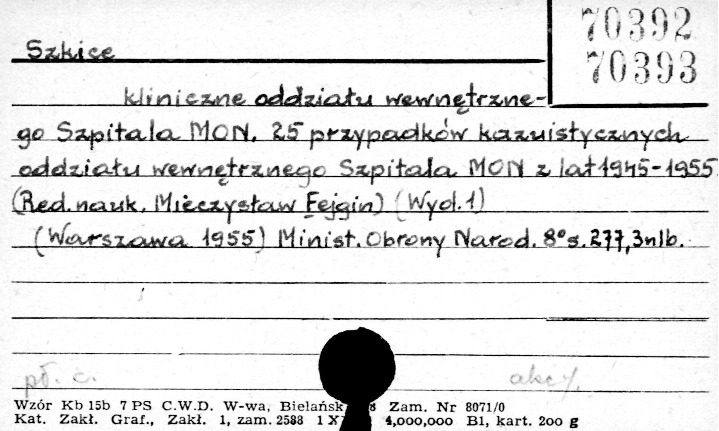 70392
70393
Szkice
kliniczne oddziału wewnętrzne-
go Szpitala MON. 25 przypadków kazuistycznych
oddziału wewnętrznego Szpitala MON z lat 1945-1955.
(Red. nauk. Mieczysław Fejgin) (Wyd. 1)
(Warszawa 1955) Minist. Obrony Narod. 8° s. 277, 3 nlb.
pł. c.
Wzór Kb 15b 7 PS C.W.D. W-wa, Bielańsk 8 Zam. Nr 8071/0
Kat. Zakł. Graf., Zakł. 1, zam. 2588 1 X 4,000,000 B1, kart. 200 g